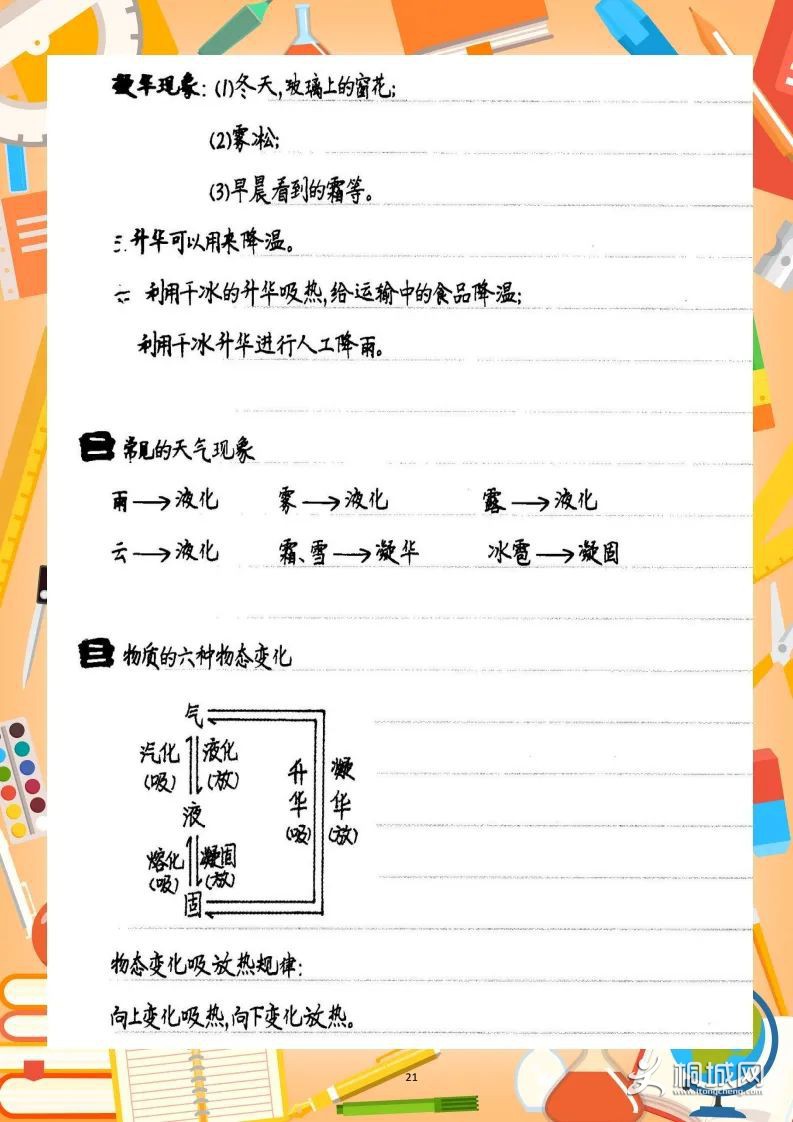 凝华现象:(1)冬天,玻璃上的窗花;
(2)雾凇;
(3)早晨看到的霜等。
三.升华可以用来降温。
利用干冰的升华吸热,给运输中的食品降温;
利用干冰升华进行人工降雨。
二 常见的天气现象
雨→液化 雾→液化 露→液化
云→液化 霜、雪→凝华 冰雹→凝固
三 物质的六种物态变化
气
汽化 液化
(吸) (放)
液
熔化 凝固
(吸) (放)
固
升华(吸)
凝华(放)
物态变化吸放热规律:
向上变化吸热,向下变化放热。
21
桐城网
www.itongcheng.com